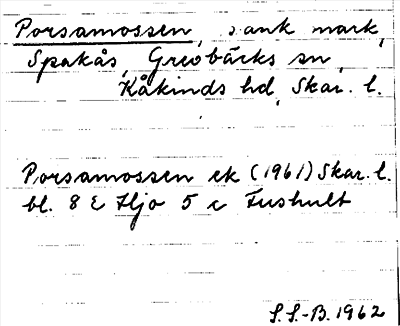 Porsamossen, sank mark,
Spakås, Grevbäcks sn,
Kåkinds hd, Skar. l.
Porsamossen ek (1961) Skar. l.
bl. 8 E Hjo 5 c Fushult
S.S.-B. 1962